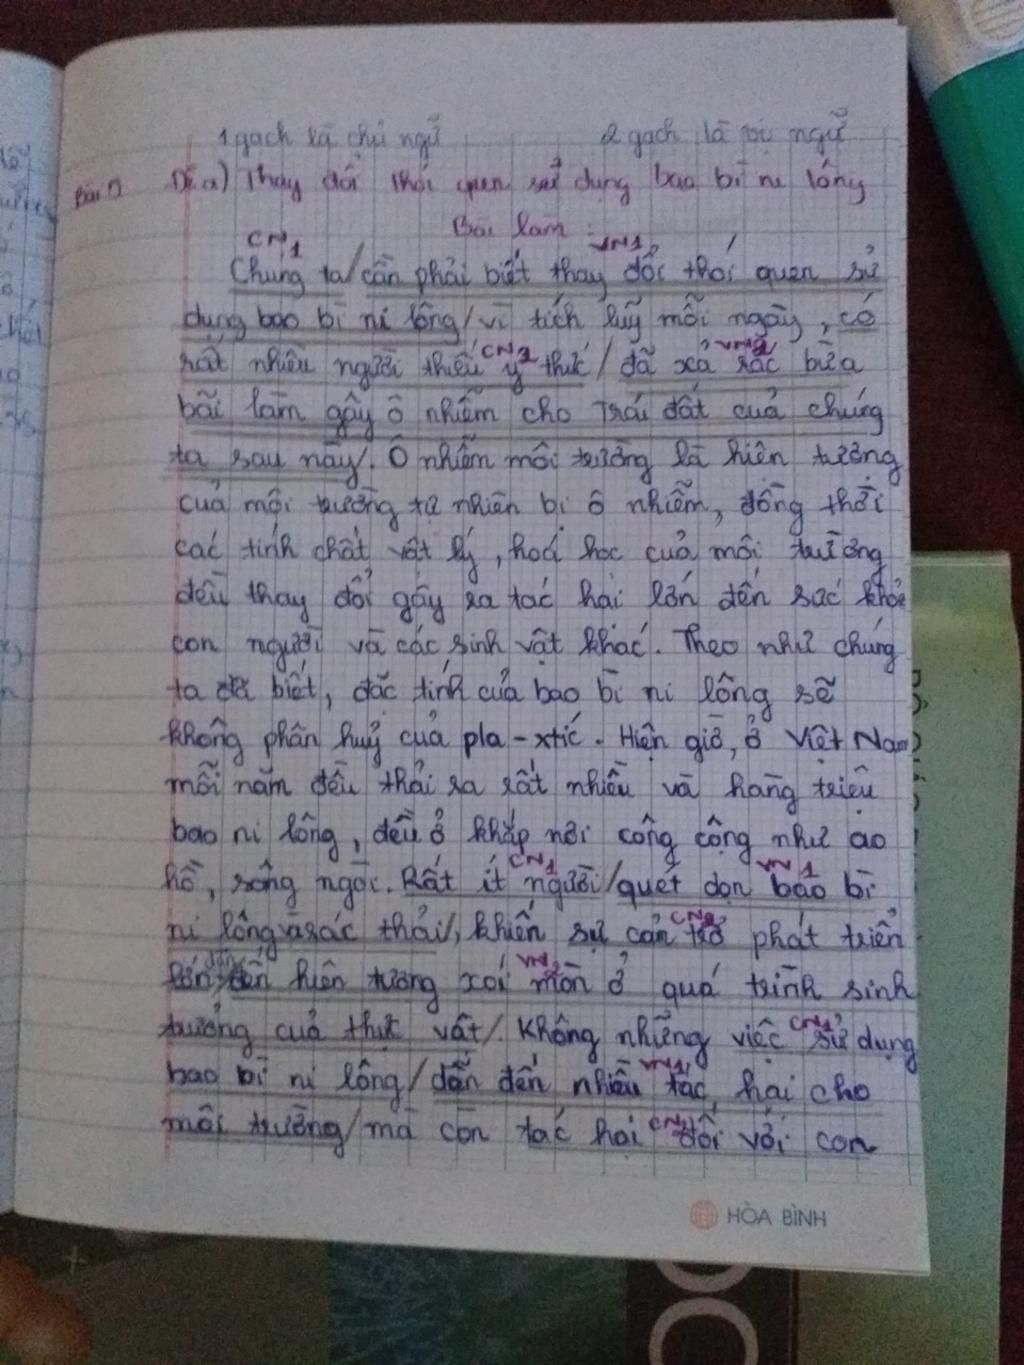 1 gạch là chủ ngữ 2 gạch là vị ngữ
Đề a) Thay đổi thói quen sử dụng bao bì ni lông
Bài làm:
CN1 VN1
Chúng ta/cần phải biết thay đổi thói quen sử
dụng bao bì ni lông/vì tích lũy mỗi ngày, có
CN2 VN2
rất nhiều người thiếu ý thức/đã xả rác bừa
bãi làm gây ô nhiễm cho Trái đất của chúng
ta sau này/. Ô nhiễm môi trường là hiện tượng
của môi trường tự nhiên bị ô nhiễm, đồng thời
các tính chất vật lý, hoá học của môi trường
đều thay đổi gây ra tác hại lớn đến sức khỏe
con người và các sinh vật khác. Theo như chúng
ta đã biết, đặc tính của bao bì ni lông sẽ
không phân huỷ của pla-xtíc. Hiện giờ, ở Việt Nam
mỗi năm đều thải ra rất nhiều và hàng triệu
bao ni lông, đều ở khắp nơi công cộng như ao
CN1 VN1
hồ, sông ngòi. Rất ít người/quét dọn bao bì
CN2
ni lông và rác thải/, khiến sự cản trở phát triển
VN2
lớn dẫn đến hiện tượng xói mòn ở quá trình sinh
CN1
trưởng của thực vật/. Không những việc sử dụng
VN1
bao bì ni lông/dẫn đến nhiều tác hại cho
môi trường/mà còn tác hại đối với con
HÒA BÌNH